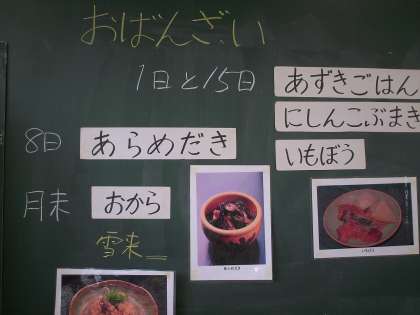 おばんざい
1日と15日
あずきごはん
にしんこぶまき
いもぼう
8日
あらめだき
月末
おから
雪来